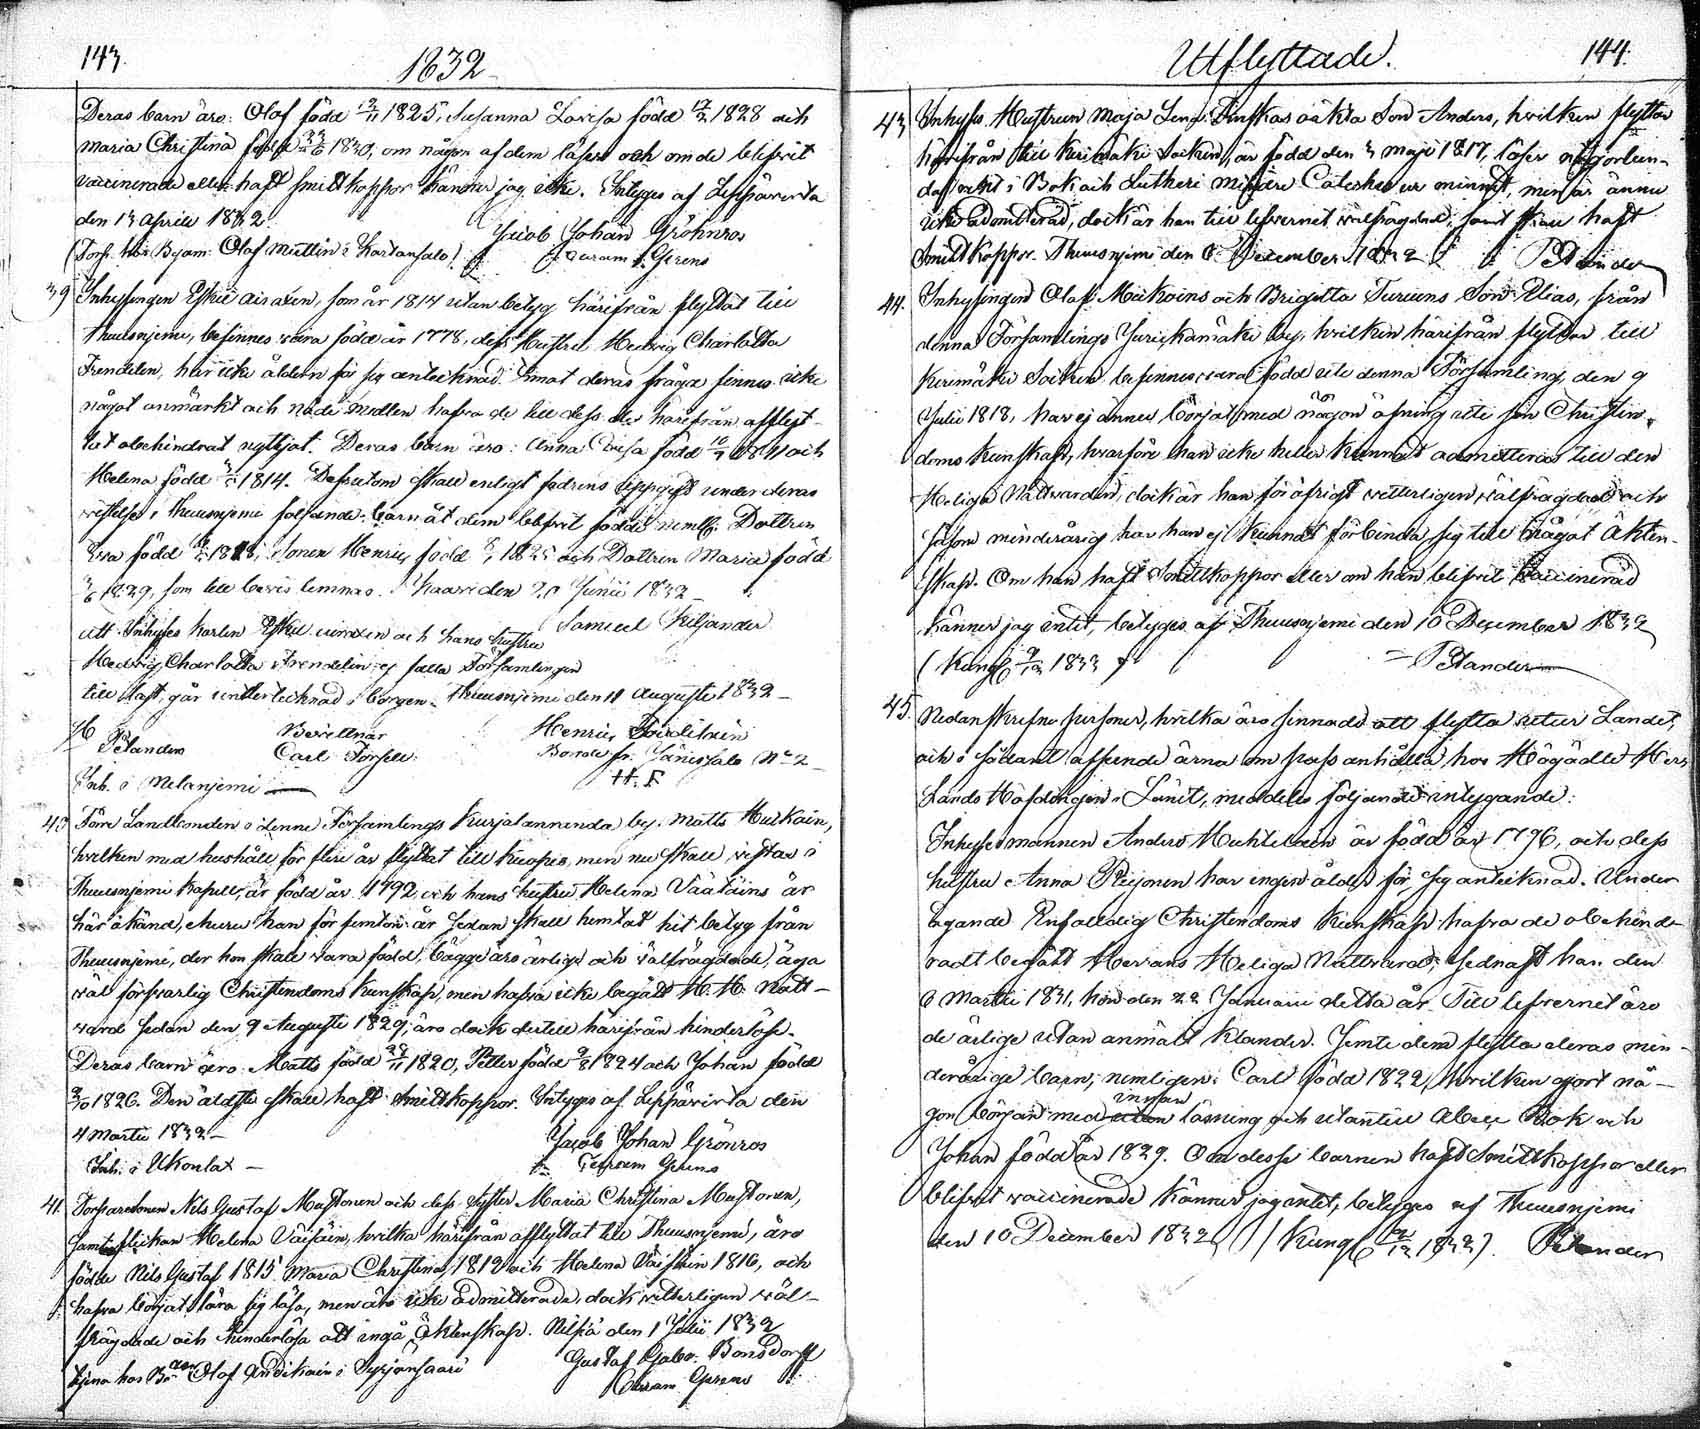 143.
1832
Deras barn äro: Olof född 9/11 1825, Susanna Lovisa född 17/2 1828 och
Maria Christina född 23/6 1830, om någon af dem läser och om de blifvit
vaccinerade eller haft smittkoppor känner jag icke. Intygas af Leppävirta
den 13 Aprill 1832.
Jacob Johan Gröhnros
(Torp. hos Byam. Olof Miettin i Hartansalo)
39 Inhysingen Eskil som år 1814 utan betyg härifrån flyttat till
Thuusnjemi, befinnes vara född år 1778, dess Hustru Hedvig Charlotta
Frendelin, har icke åldern för sig antecknad. Emot deras frägd finnes icke
något anmärkt och nådemedlen hafva de till dess de härifrån afflyt-
tat obehindrat nyttjat. Deras barn äro: Anna Lovisa född 1811 och
Helena född 1814. Dessutom skall enligt fadrens uppgift under deras
vistelse i Thuusnjemi följande barn åt dem blifvit födde neml. Dottren
Eva född 1818, Sonen Henric född 1825 och Dottren Maria född
1829, som till bevis lemnas. Kaavi den 20 Junii 1832
Samuel Kiljander
Att Inhyses karlen Eskil och hans hustru
Hedvig Charlotta Frendelin ej falla Församlingen
till last, går undertecknad i borgen. Thuusnjemi den 11 Augusti 1832
Henric
Bevittnar
Petander Carl Forsell Bonde fr. Jänissalo No 2
H. F.
Inh. i Melanjemi
40 Förre Landbonden i denne Församlings Kurjalanranda by. Matts
hvilken med hushåll för flere år flyttat till Kuopio, men nu skall vistas i
Thuusnjemi Kapell, är född år 1792 och hans hustru Helena Väätäins är
här okänd, ehuru han för femton år sedan skall hemtat hit betyg från
Thuusnjemi, der hon skall vara född, bägge äro ärlige och välfrägdade, äga
väl försvarlig Christendoms kunskap, men hafva icke begått H. H. Natt-
vard sedan den 9 Augusti 1829, äro dock dertill härifrån hinderlöse.
Deras barn äro: Matts född 28/11 1820, Petter född 9/8 1824 och Johan född
3/10 1826. Den äldste skall haft smittkoppor. Intygas af Leppävirta den
4 Martii 1832
Jacob Johan Grönros
Inh. i Ukonlax
41. Torparesonen Nils Gustaf Mustonen och dess syster Maria Christina Mustonen,
samt flickan Helena Väisäin, hvilka härifrån afflyttat till Thuusnjemi, äro
födde Nils Gustaf 1815 Maria Christina 1812 och Helena Väisäin 1816, och
hafva börjat lära sig läsa, men äro icke admitterade, dock vitterligen väl-
frägdade och hinderlösa att ingå Äktenskap. Nilsiä den 1 Julii 1832
Gustaf Gabr. Bonsdorff
tjena hos Olof i Syrjänsaari
Utflyttade.
144.
43 Inhyses Hustrun Maja Lena äkta Son Anders, hvilken flyttar
härifrån till Kerimäki Socken, är född den 3 Maji 1817, läser någorlun-
da i Bok och Lutheri mindre Cateches ur minnet, men är ännu
icke admitterad, dock är han till lefvernet välfrägdad, samt skall haft
Smittkoppor. Thuusnjemi den 6 December 1832
Petander
44. Inhysingen Olof Miikkins och Brigitta Turuins Son Elias, från
denna Församlings Jurickamäki by, hvilken härifrån flyttar till
Kerimäki Socken befinnes vara född uti denna Församling, den 9
Julii 1818, har ej ännu börjat med någon öfning uti sin Christen-
doms kunskap, hvarföre han icke heller kunnat admitteras till den
Heliga Nattvarden, dock är han för öfrigt vitterligen välfrägdad och
såsom minderårig har han ej kunnat förbinda sig till något Äkten-
skap. Om han haft Smittkoppor eller om han blifvit vaccinerad
känner jag intet, betyges af Thuusnjemi den 10 December 1832
(Kungl. 1833) Petander
45. Nedanskrefne personer, hvilka äro sinnade att flytta utur Landet,
och i sådant afseende ärna om pass anhålla hos Högädle Herr
Lands Höfdingen i Länet, meddeles följande intygande:
Inhysesmannen Anders är född år 1796, och dess
hustru Anna Reijonen har ingen ålder för sig antecknad. Under
ägande Enfalldig Christendoms kunskap hafva de obehind-
radt begått Herrans Heliga Nattvard, sednast han den
6 Martii 1831, hon den 22 Januarii detta år. Till lefvernet äro
de ärlige utan anmält klander. Jemte dem flytta deras min-
deråriga barn, nemligen: Carl född 1822, hvilken gjort nå-
gon början med innan läsning och utantill Abece Bok och
Johan född år 1829. Om desse barnen haft Smittkoppor eller
blifvit vaccinerade känner jag intet, betyges af Thuusnjemi
den 10 December 1832 (Kungl. 1833). Petander